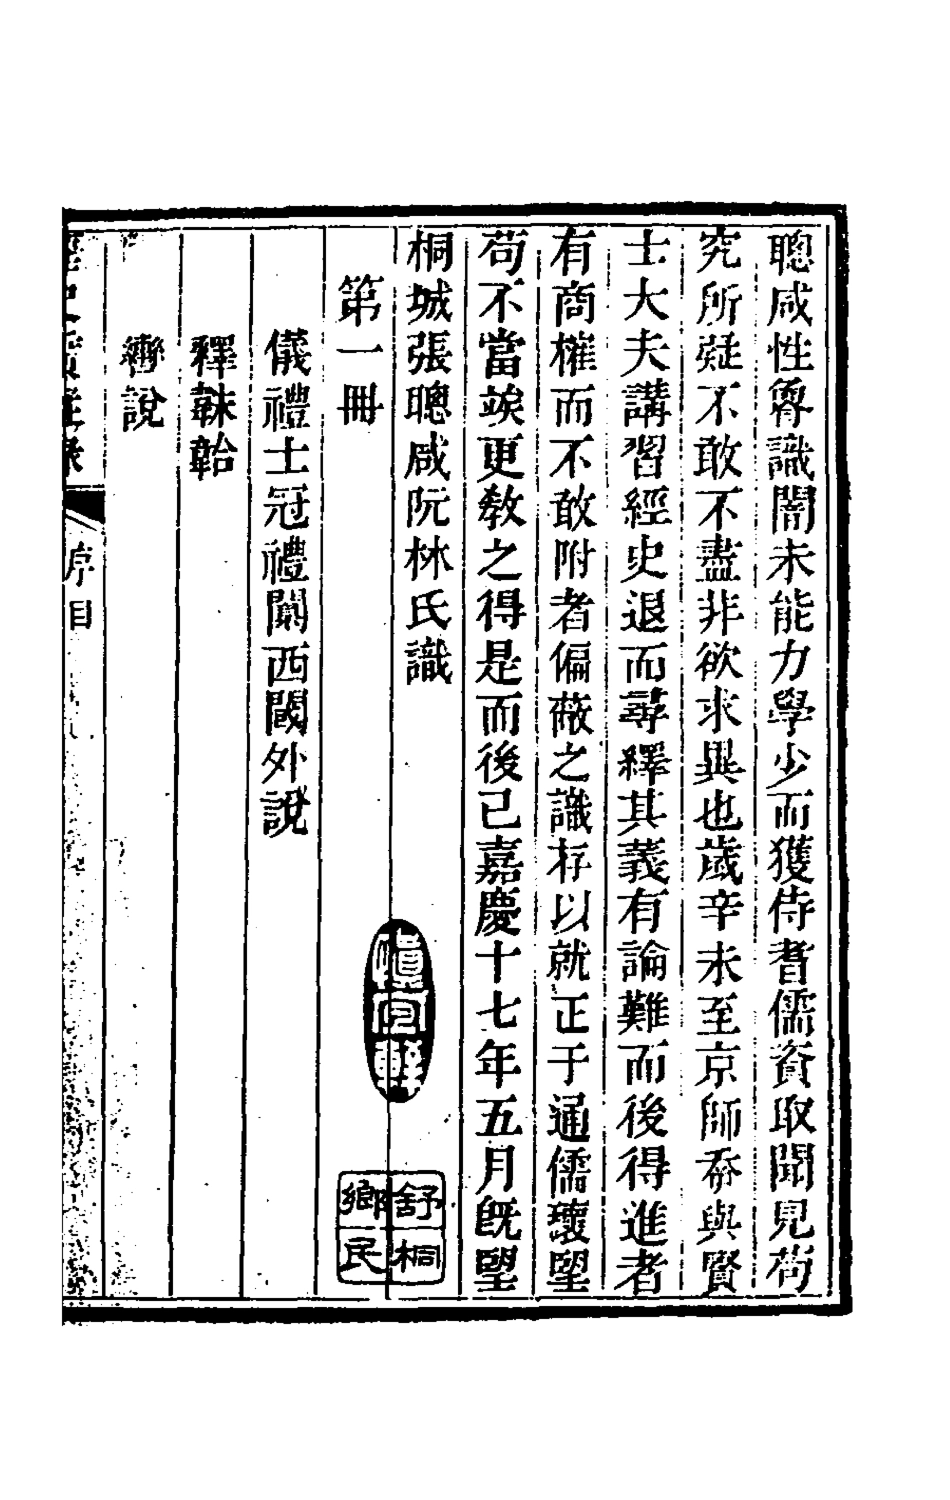 聰咸性魯識闇未能力學少而獲侍耆儒資取聞見苟
究所疑不敢不盡非欲求異也歲辛未至京師忝與賢
士大夫講習經史退而尋繹其義有論難而後得進者
有商榷而不敢附者偏蔽之識存以就正于通儒瓌望
苟不當竢更敎之得是而後已嘉慶十七年五月旣望
桐城張聰咸阮林氏識
舒桐
鄉民
第一冊
儀禮士冠禮闑西閾外說
釋韎韐
轡說
經史質疑錄
序目